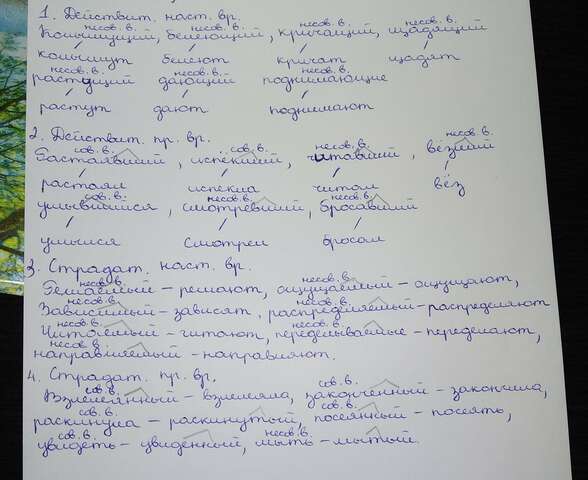 1. Действит. наст. вр.
несов. в. несов. в. несов. в. несов. в.
Колышущий, белеющий, кричащий, щадящий
колышут белеют кричат щадят
несов. в. несов. в. несов. в.
растущий дающий поднимающие
растут дают поднимают
2. Действит. пр. вр.
сов. в. сов. в. несов. в. несов. в.
Растаявший, испёкший, читавший, вёзший
растаял испекла читал вёз
сов. в. несов. в. несов. в.
умывшийся, смотревший, бросавший
умылся смотрел бросал
3. Страдат. наст. вр.
несов. в. несов. в.
Решаемый - решают, ощущаемый - ощущают,
несов. в. несов. в.
Зависимый - зависят, распределяемый - распределяют
несов. в. несов. в.
Читаемый - читают, переделываемые - переделают,
несов. в.
направляемый - направляют.
4. Страдат. пр. вр.
сов. в. сов. в.
Взлелеянный - взлелеяла, законченный - закончила,
сов. в. сов. в.
раскинула - раскинутый, посеянный - посеять,
сов. в. несов. в.
увидеть - увиденный, мыть - мытый.